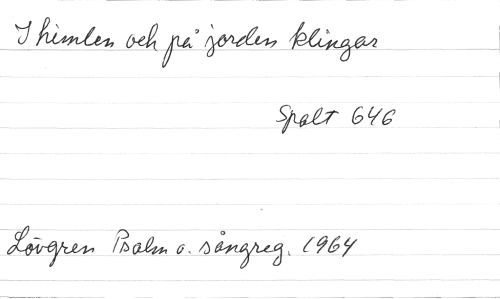 I himlen och på jorden klingar
Spalt 646
Lövgren Psalm o. sångreg. 1964